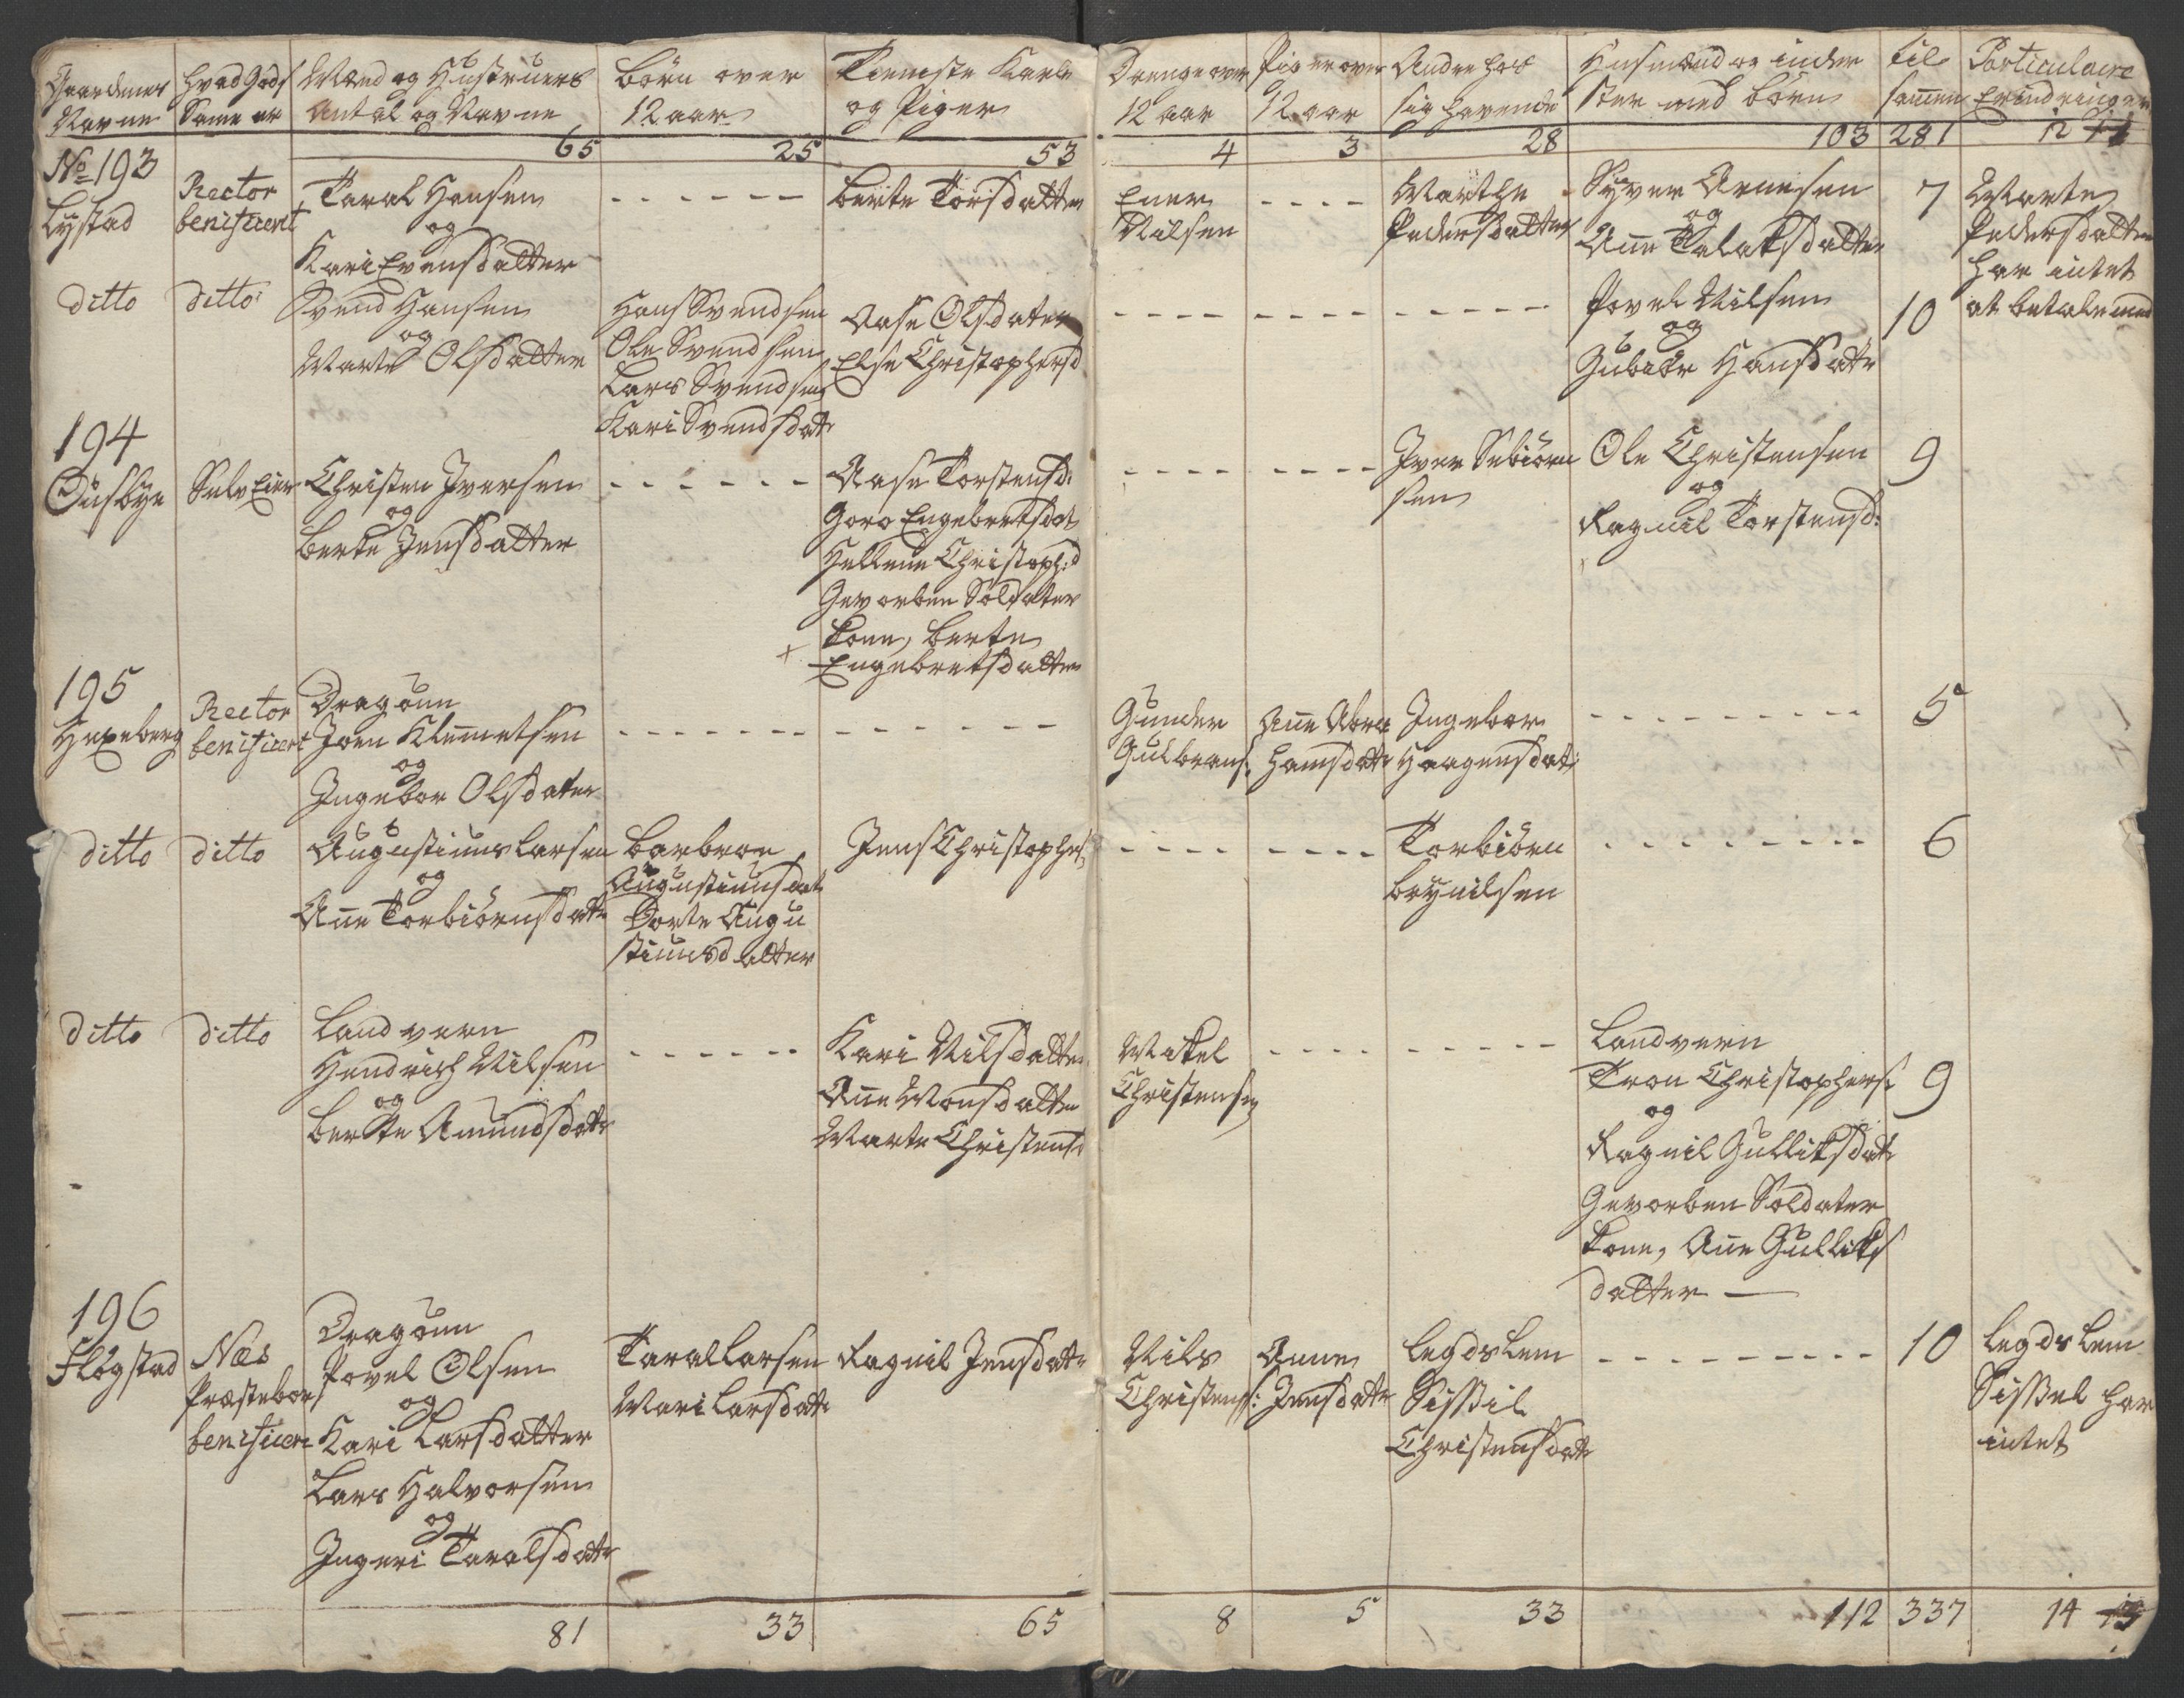 Gaardenes Navne
Hvad Gods Same er
Mænd og Hustruers Antal og Navne
börn over 12 aar
Tieniste Karle og Piger
Drenge over 12 aar
Piger over 12 aar
Andre hos sig havende
Husmænd og inderster med börn
til samen
Particulaire Erindringer
65 25 53 4 3 28 103 281 12
No 193
Lystad
Rector beneficeret
Taral Hansen
og
Kari Evensdatter
- - - - - -
berte Torsdatter
Ener
Nilsen
- - - -
Marthe
Pedersdatter
Syver Arnesen
og
Ane Aslaksdatter
7
Marte
Pedersdatter
har intet
at betale med
ditto
ditto
Svend Hansen
og
Marte Olsdatter
Hans Svendsen
Ole Svendsen
Lars Svendsen
Kari Svendsdatr
Aase Olsdater
Else Christophersd
- - - - - - - - - - - -
Povel Nilsen
og
Gubiör Hansdatr
10
194
Ousbye
Selv Eier
Christen Iversen
og
berte Jensdatter
- - - - - -
Aase Torstensd:
Goro Engebretsdat
Hellene Christoph:d
Gevorben Soldater
kone, berte
+ Engebretsdatter
- - - - - - - -
Iver Sebiörn
sen
Ole Christensen
og
Ragnil Torstensd:
9
195
Hexeberg
Rector
benificert
Dragoun
Joen Klemetsen
og
Ingebor Olsdater
- - - - - - - - - - - -
Gunder
Gulbrans:
Ane Abra
hamsdatr
Ingebor
Haagensdat:
- - - - - - - - -
5
ditto
ditto
Augustinus Larsen
og
Ane Torbiörnsdatr
barbroe
Augustinusdat
Dorte Augu
stinusdatter
Jens Christophers:
- - - - - - - -
Torbiörn
brynilsen
- - - - - - - -
6
ditto
ditto
Landvern
Hendrich Nilsen
og
berte Amundsdatr
- - - - - -
Kari Nilsdatter
Ane Monsdatter
Marte Christensd
Mikel
Christensen
- - - - - - - - -
Landvern
Tron Christophers:
og
Ragnil Gulliksdatr
Gevorben Soldater
kone, Ane Gulliks
datter —
9
196
Flogstad
Næs
Præstebord
benificeret
Dragoun
Povel Olsen
og
Kari Larsdatter
Lars Halvorsen
og
Ingeri Taralsdatr
Taral Larsen
Mari Larsdatr
Ragnil Jensdatr
Nils
Christens:
Anne
Jensdatr
Legdslem
Sissil
Christensdatr
- - - - - - - - -
10
Legdslem
Sissel har
intet
81 33 65 8 5 33 112 337 14